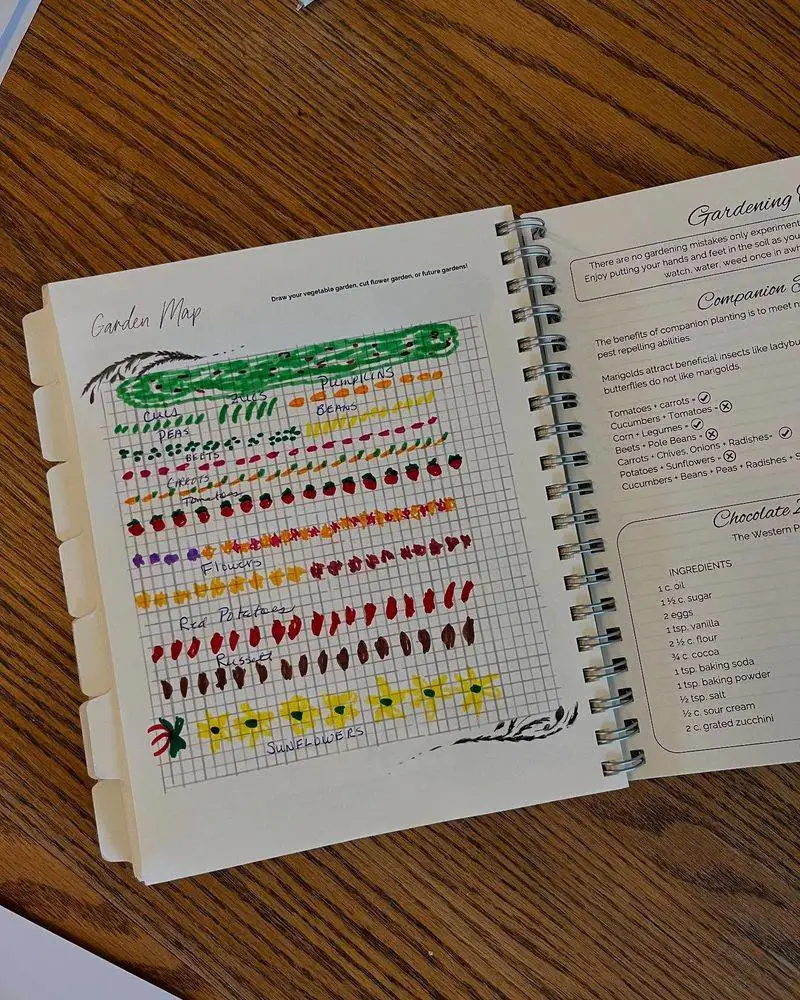 Garden Map
Draw your vegetable garden, cut flower garden, or future gardens!
CUCS ZUCS PUMPKINS
PEAS BEANS
BEETS
CARROTS
Tomatoes
Flowers
Red Potatoes
Russett
SUNFLOWERS
Gardening
There are no gardening mistakes only experiment
Enjoy putting your hands and feet in the soil as you
watch, water, weed once in awh
Companion
The benefits of companion planting is to meet n
pest repelling abilities.
Marigolds attract beneficial insects like ladybu
butterflies do not like marigolds.
Tomatoes + carrots -
Cucumbers + Tomatoes -
Corn + Legumes -
Beets + Pole Beans -
Carrots + Chives, Onions + Radishes-
Potatoes + Sunflowers -
Cucumbers + Beans + Peas + Radishes + S
Chocolate
The Western P
INGREDIENTS
1 c. oil
1 ½ c. sugar
2 eggs
1 tsp. vanilla
2 ½ c. flour
¾ c. cocoa
1 tsp. baking soda
1 tsp. baking powder
½ tsp. salt
½ c. sour cream
2 c. grated zucchini